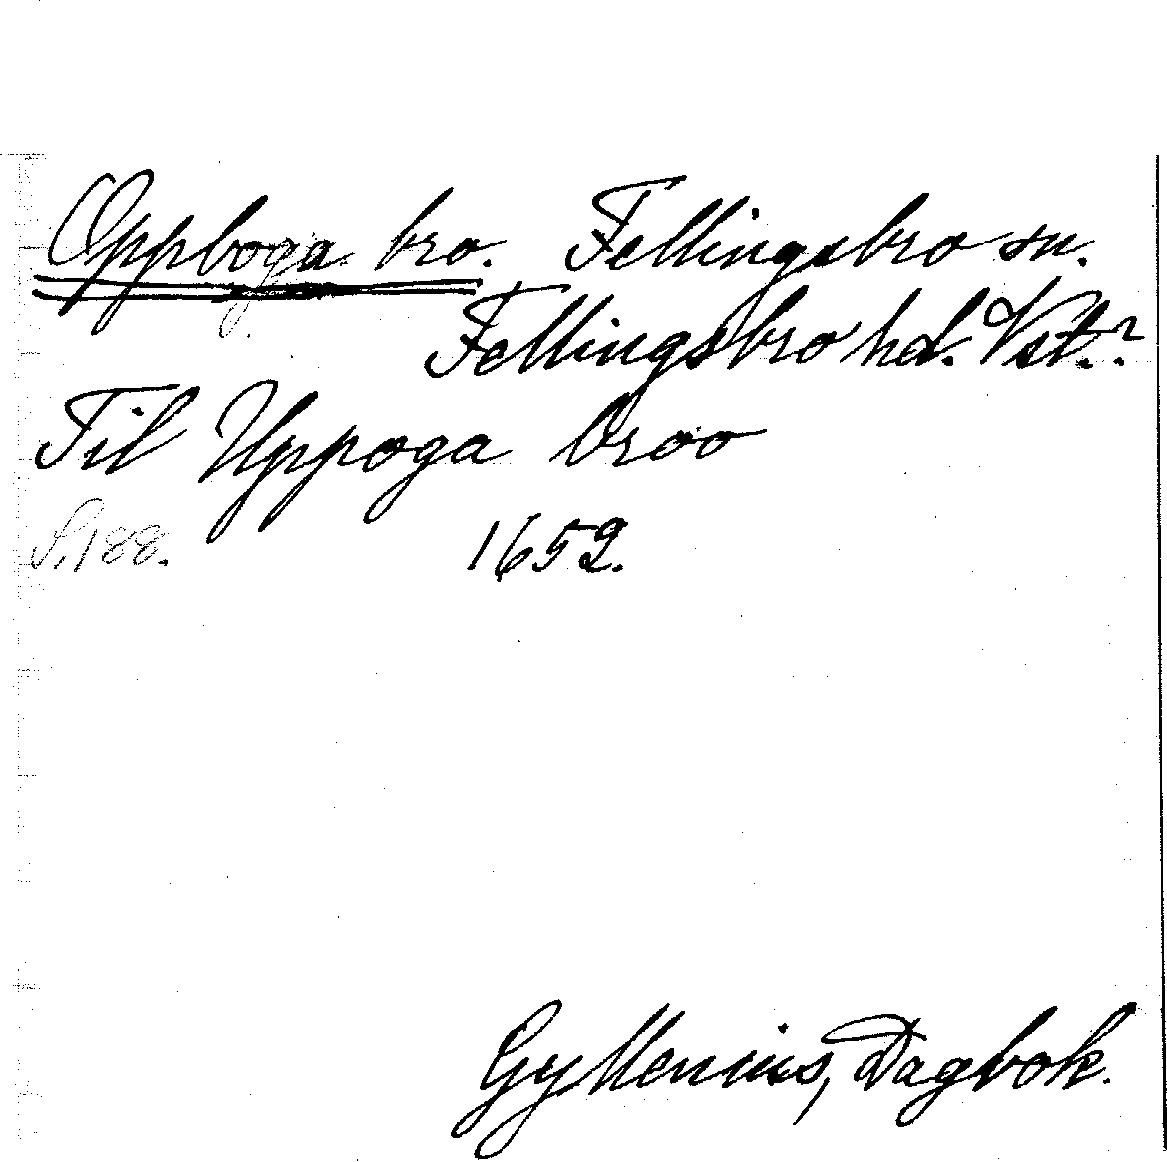 Oppboga bro. Fellingsbro sn.
Fellingsbro hd. Vstm.?
Til Uppoga broo
S. 188. 1652.
Gyllenius, Dagbok.